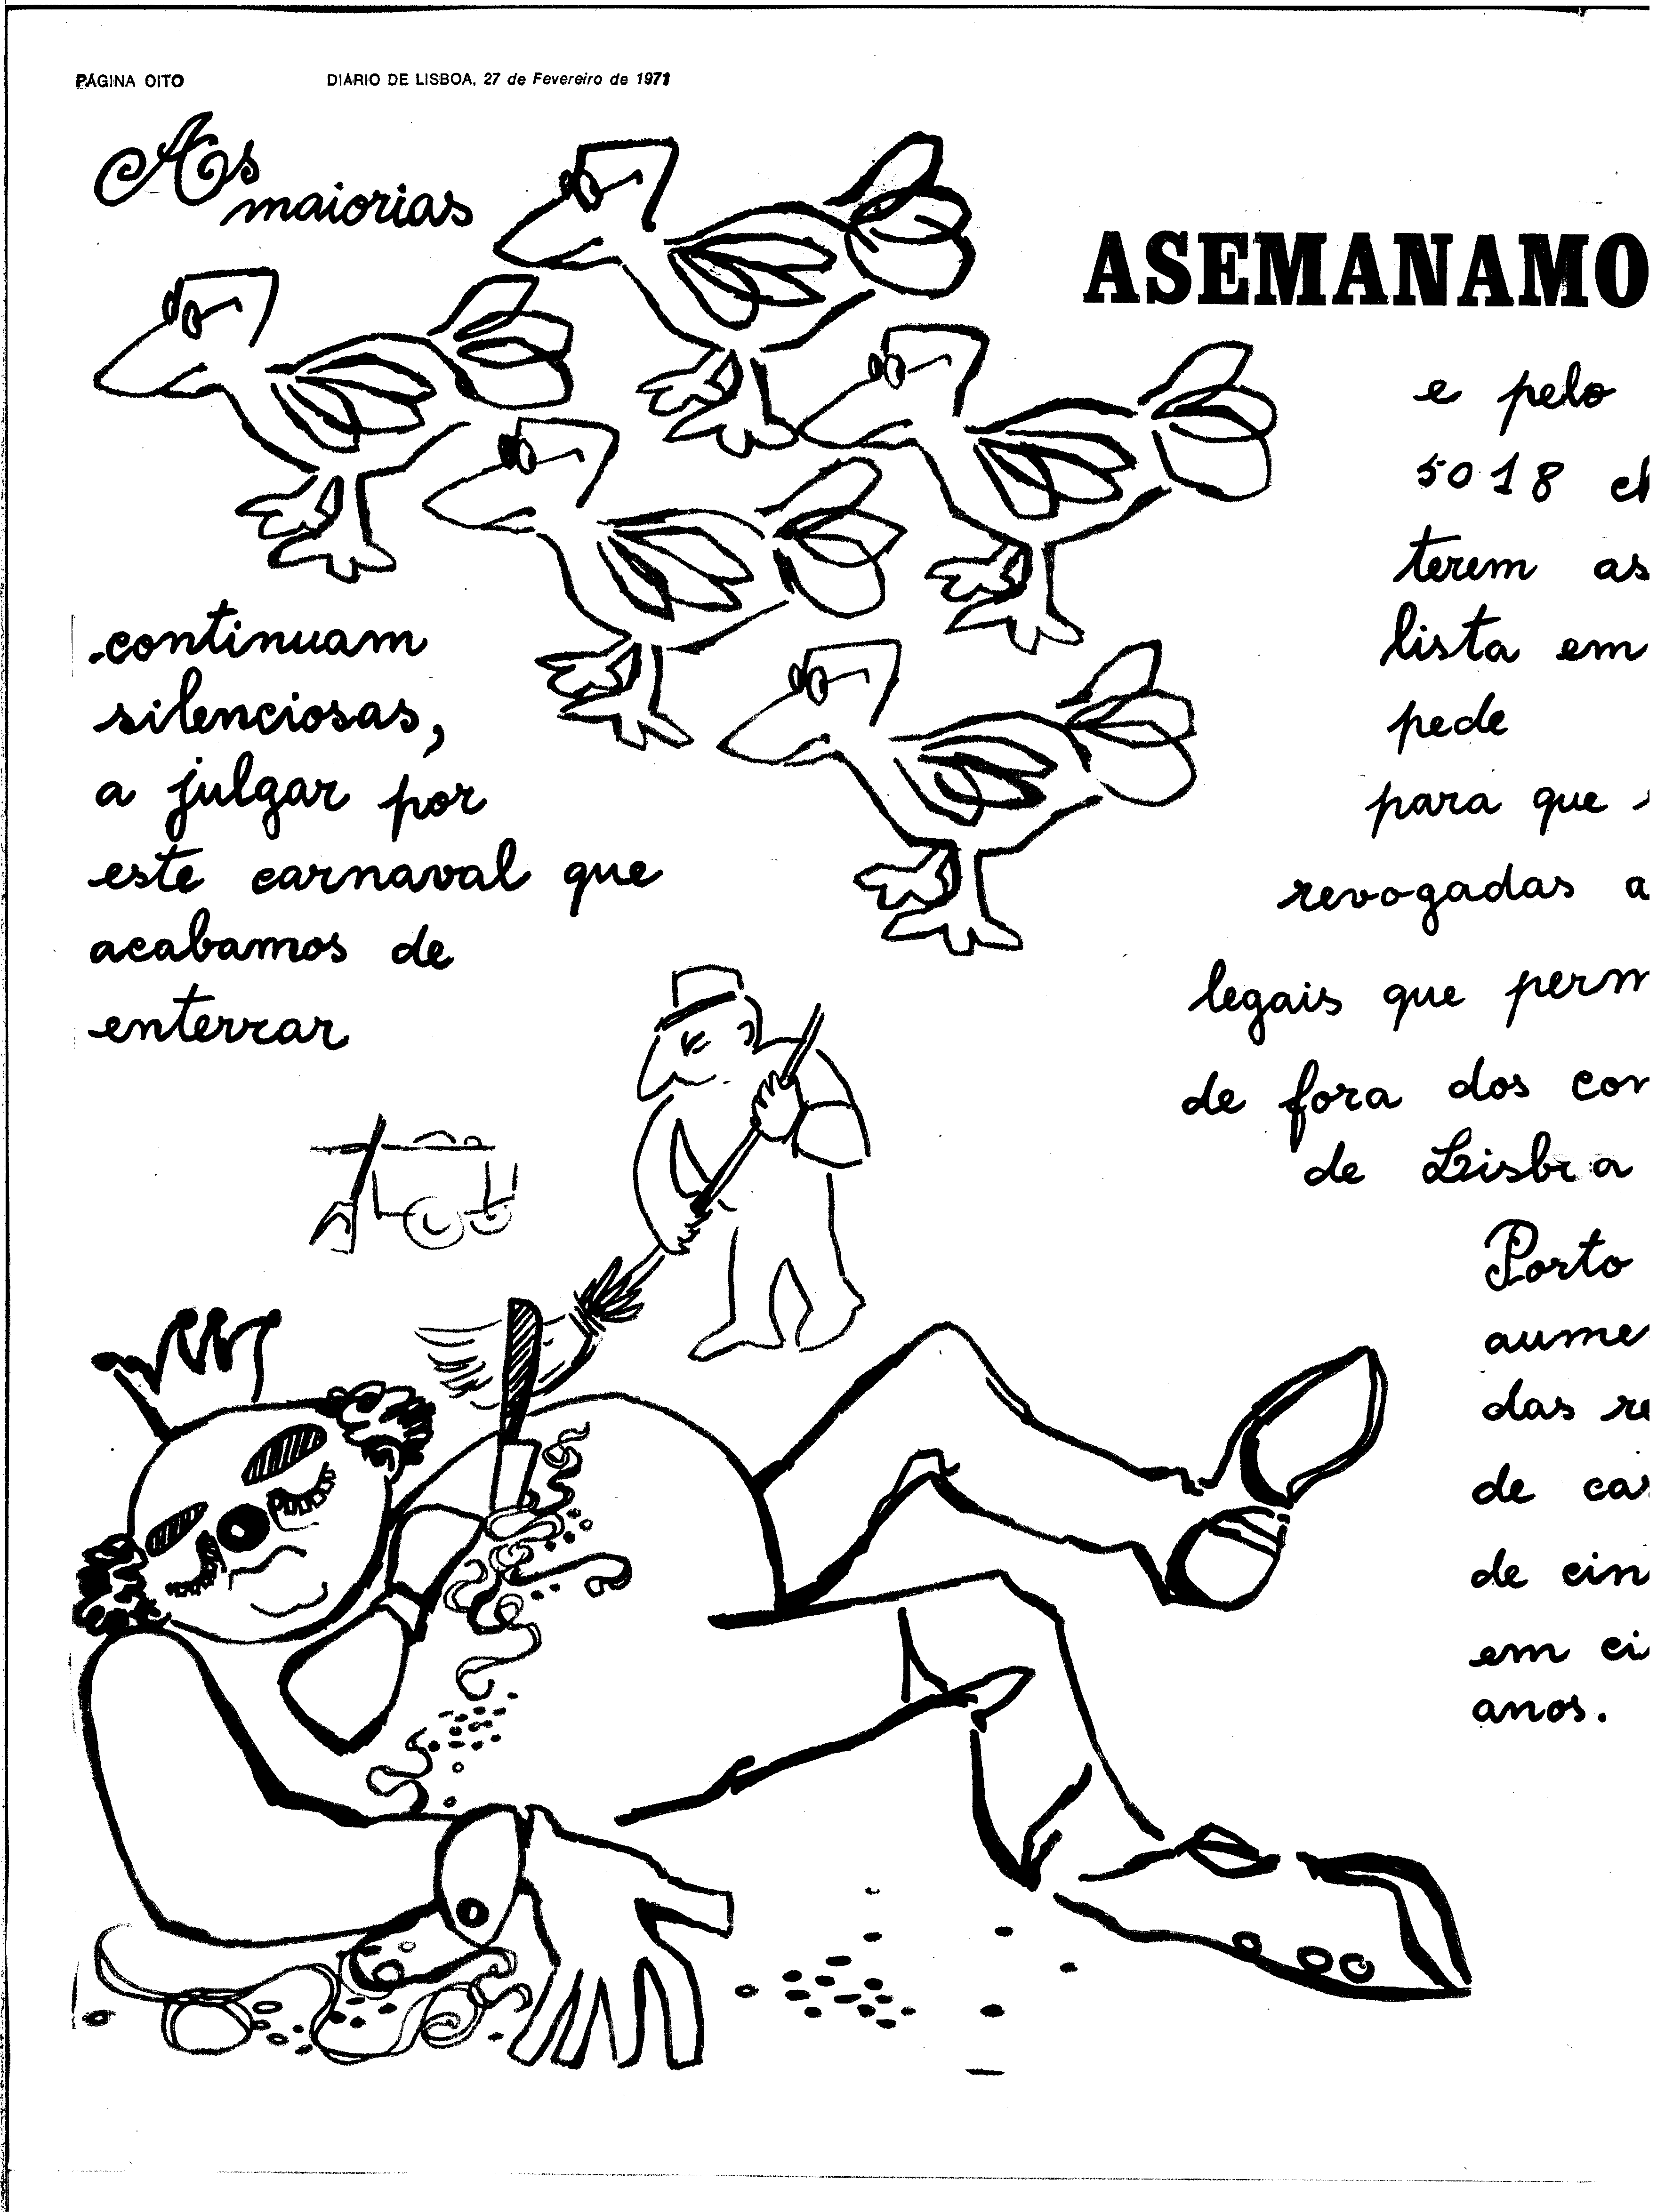 PÁGINA OITO
DIÁRIO DE LISBOA, 27 de Fevereiro de 1971
As
maiorias
continuam
silenciosas,
a julgar por
este carnaval que
acabamos de
enterrar
ASEMANAMO
e pelo
5018
terem as
lista em
pede
para que
revogadas a
legais que perm
de fora dos con
de Lisboa
Porto
aume
das re
de ca
de cin
em ci
anos.